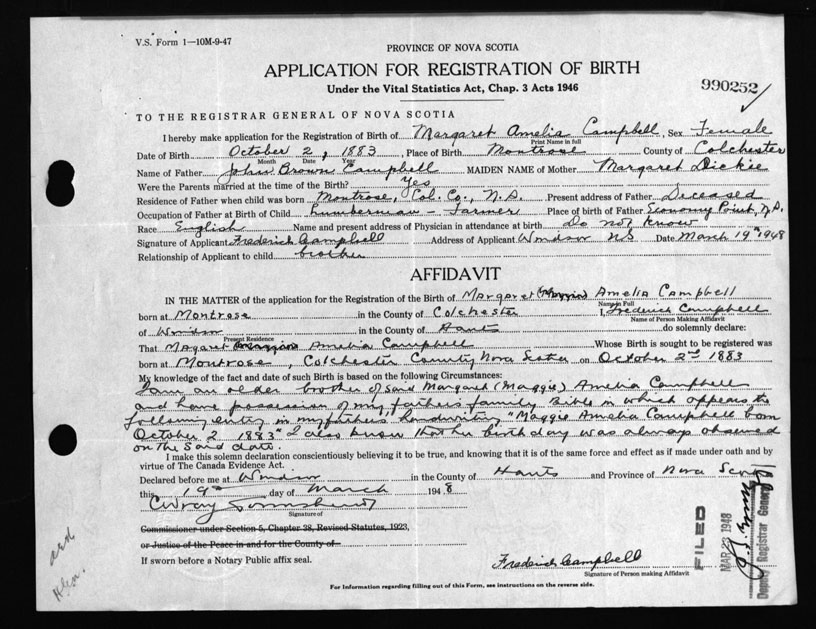 V.S. Form 1—10M-9-47
PROVINCE OF NOVA SCOTIA
APPLICATION FOR REGISTRATION OF BIRTH
Under the Vital Statistics Act, Chap. 3 Acts 1946
990252
TO THE REGISTRAR GENERAL OF NOVA SCOTIA
I hereby make application for the Registration of Birth of Margaret Amelia Campbell, Sex Female
Print Name in full
Date of Birth October 2, 1883 Place of Birth Montrose County of Colchester
Month Date Year
Name of Father John Brown Campbell MAIDEN NAME of Mother Margaret Dickie
Were the Parents married at the time of the Birth? Yes
Residence of Father when child was born Montrose, Col. Co., N.S. Present address of Father Deceased
Occupation of Father at Birth of Child Lumberman – Farmer Place of birth of Father Economy Point, N.S.
Race English Name and present address of Physician in attendance at birth Do not know
Signature of Applicant Frederick Campbell Address of Applicant Windsor NS Date March 19th 1948
Relationship of Applicant to child brother
AFFIDAVIT
IN THE MATTER of the application for the Registration of the Birth of Margaret Amelia Campbell
Name in Full
born at Montrose in the County of Colchester I, Frederick Campbell
Name of Person Making Affidavit
of Windsor in the County of Hants do solemnly declare:
Present Residence
That Magaret Amelia Campbell Whose Birth is sought to be registered was
born at Montrose, Colchester County, Nova Scotia on October 2nd 1883
My knowledge of the fact and date of such Birth is based on the following Circumstances:
I am an older brother of said Margaret (Maggie) Amelia Campbell
and have possession of my father's family Bible in which appears the
following entry in my father's handwriting "Maggie Amelia Campbell born
October 2 1883" I also know that her birthday was always observed
on the said date.
I make this solemn declaration conscientiously believing it to be true, and knowing that it is of the same force and effect as if made under oath and by
virtue of The Canada Evidence Act.
Declared before me at Windsor in the County of Hants and Province of Nova Scotia
this 19th day of March 1948
Signature of
Commissioner under Section 5, Chapter 38, Revised Statutes, 1923,
or Justice of the Peace in and for the County of
If sworn before a Notary Public affix seal.
Frederick Campbell
Signature of Person making Affidavit
FILED
MAR 23 1948
Deputy Registrar General
For Information regarding filling out of this Form, see instructions on the reverse side.